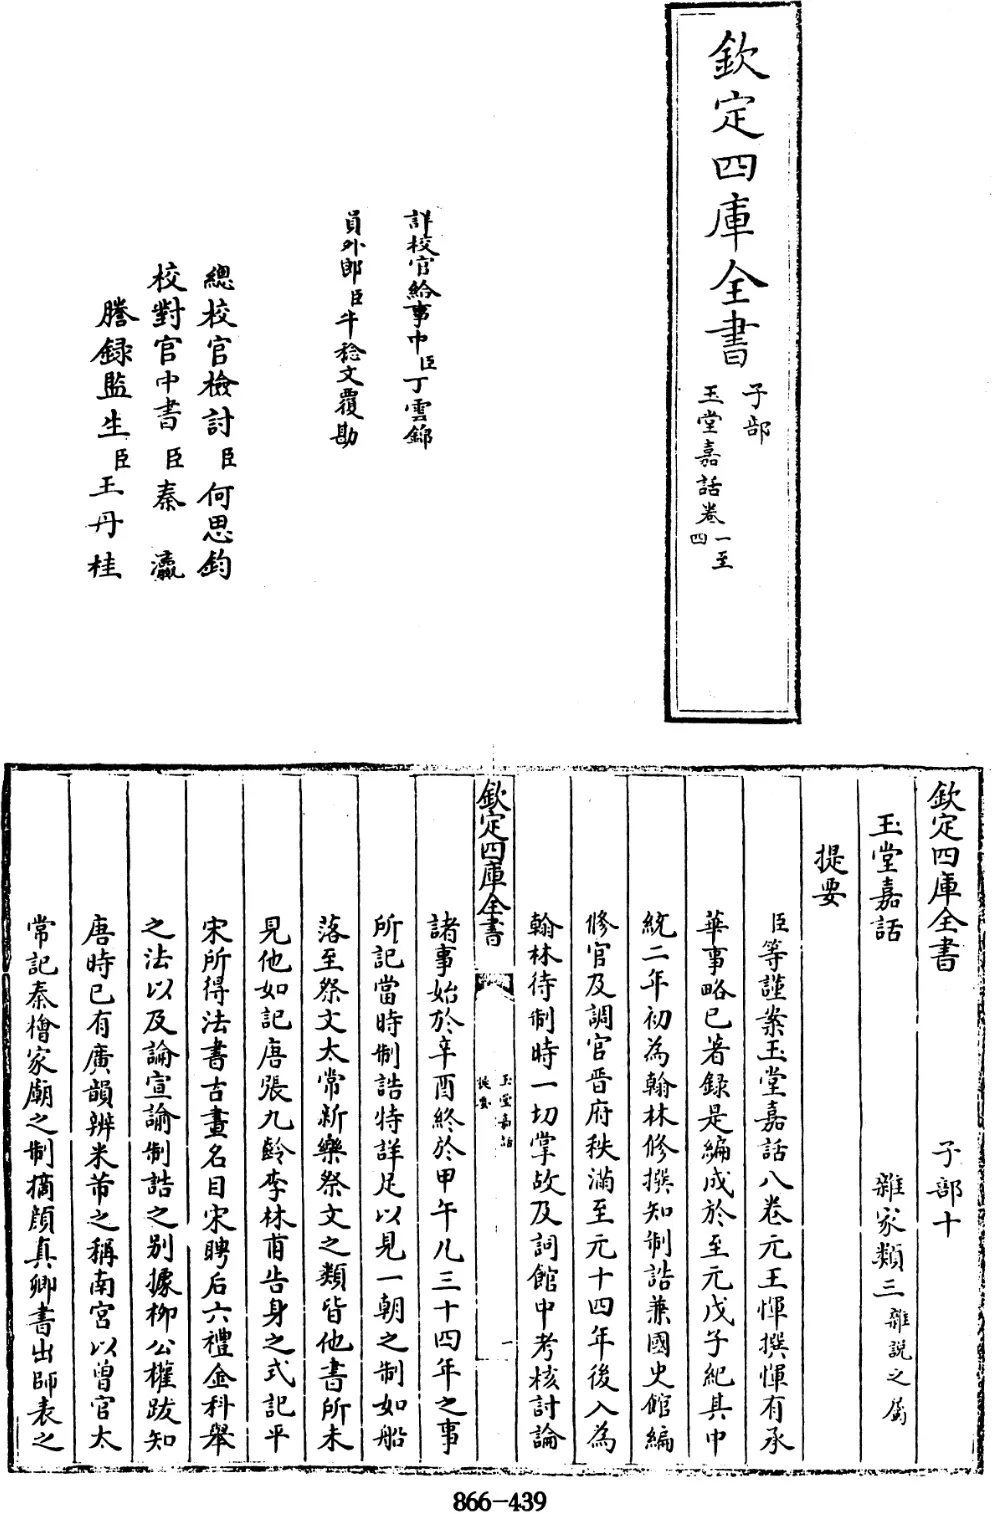 欽定四庫全書
子部
玉堂嘉話卷一至四
詳校官給事中臣丁雲錦
員外郎臣牛稔文覆勘
總校官檢討臣何思鈞
校對官中書臣秦瀛
謄録監生臣王丹桂
欽定四庫全書 子部十
玉堂嘉話 雜家類三雜說之屬
提要
臣等謹案玉堂嘉話八卷元王惲撰惲有承
華事略已著録是編成於至元戊子紀其中
統二年初為翰林修撰知制誥兼國史館編
修官及調官晋府秩滿至元十四年後入為
翰林待制時一切掌故及詞館中考核討論
欽定四庫全書
玉堂嘉話
提要
一
諸事始於辛酉終於甲午凡三十四年之事
所記當時制誥特詳足以見一朝之制如船
落至祭文太常新樂祭文之類皆他書所未
見他如記唐張九齡李林甫告身之式記平
宋所得法書古畫名目宋聘后六禮金科舉
之法以及論宣諭制誥之别據柳公權跋知
唐時已有廣韻辨米芾之稱南宮以曾官太
常記秦檜家廟之制摘顔真卿書出師表之
866-439